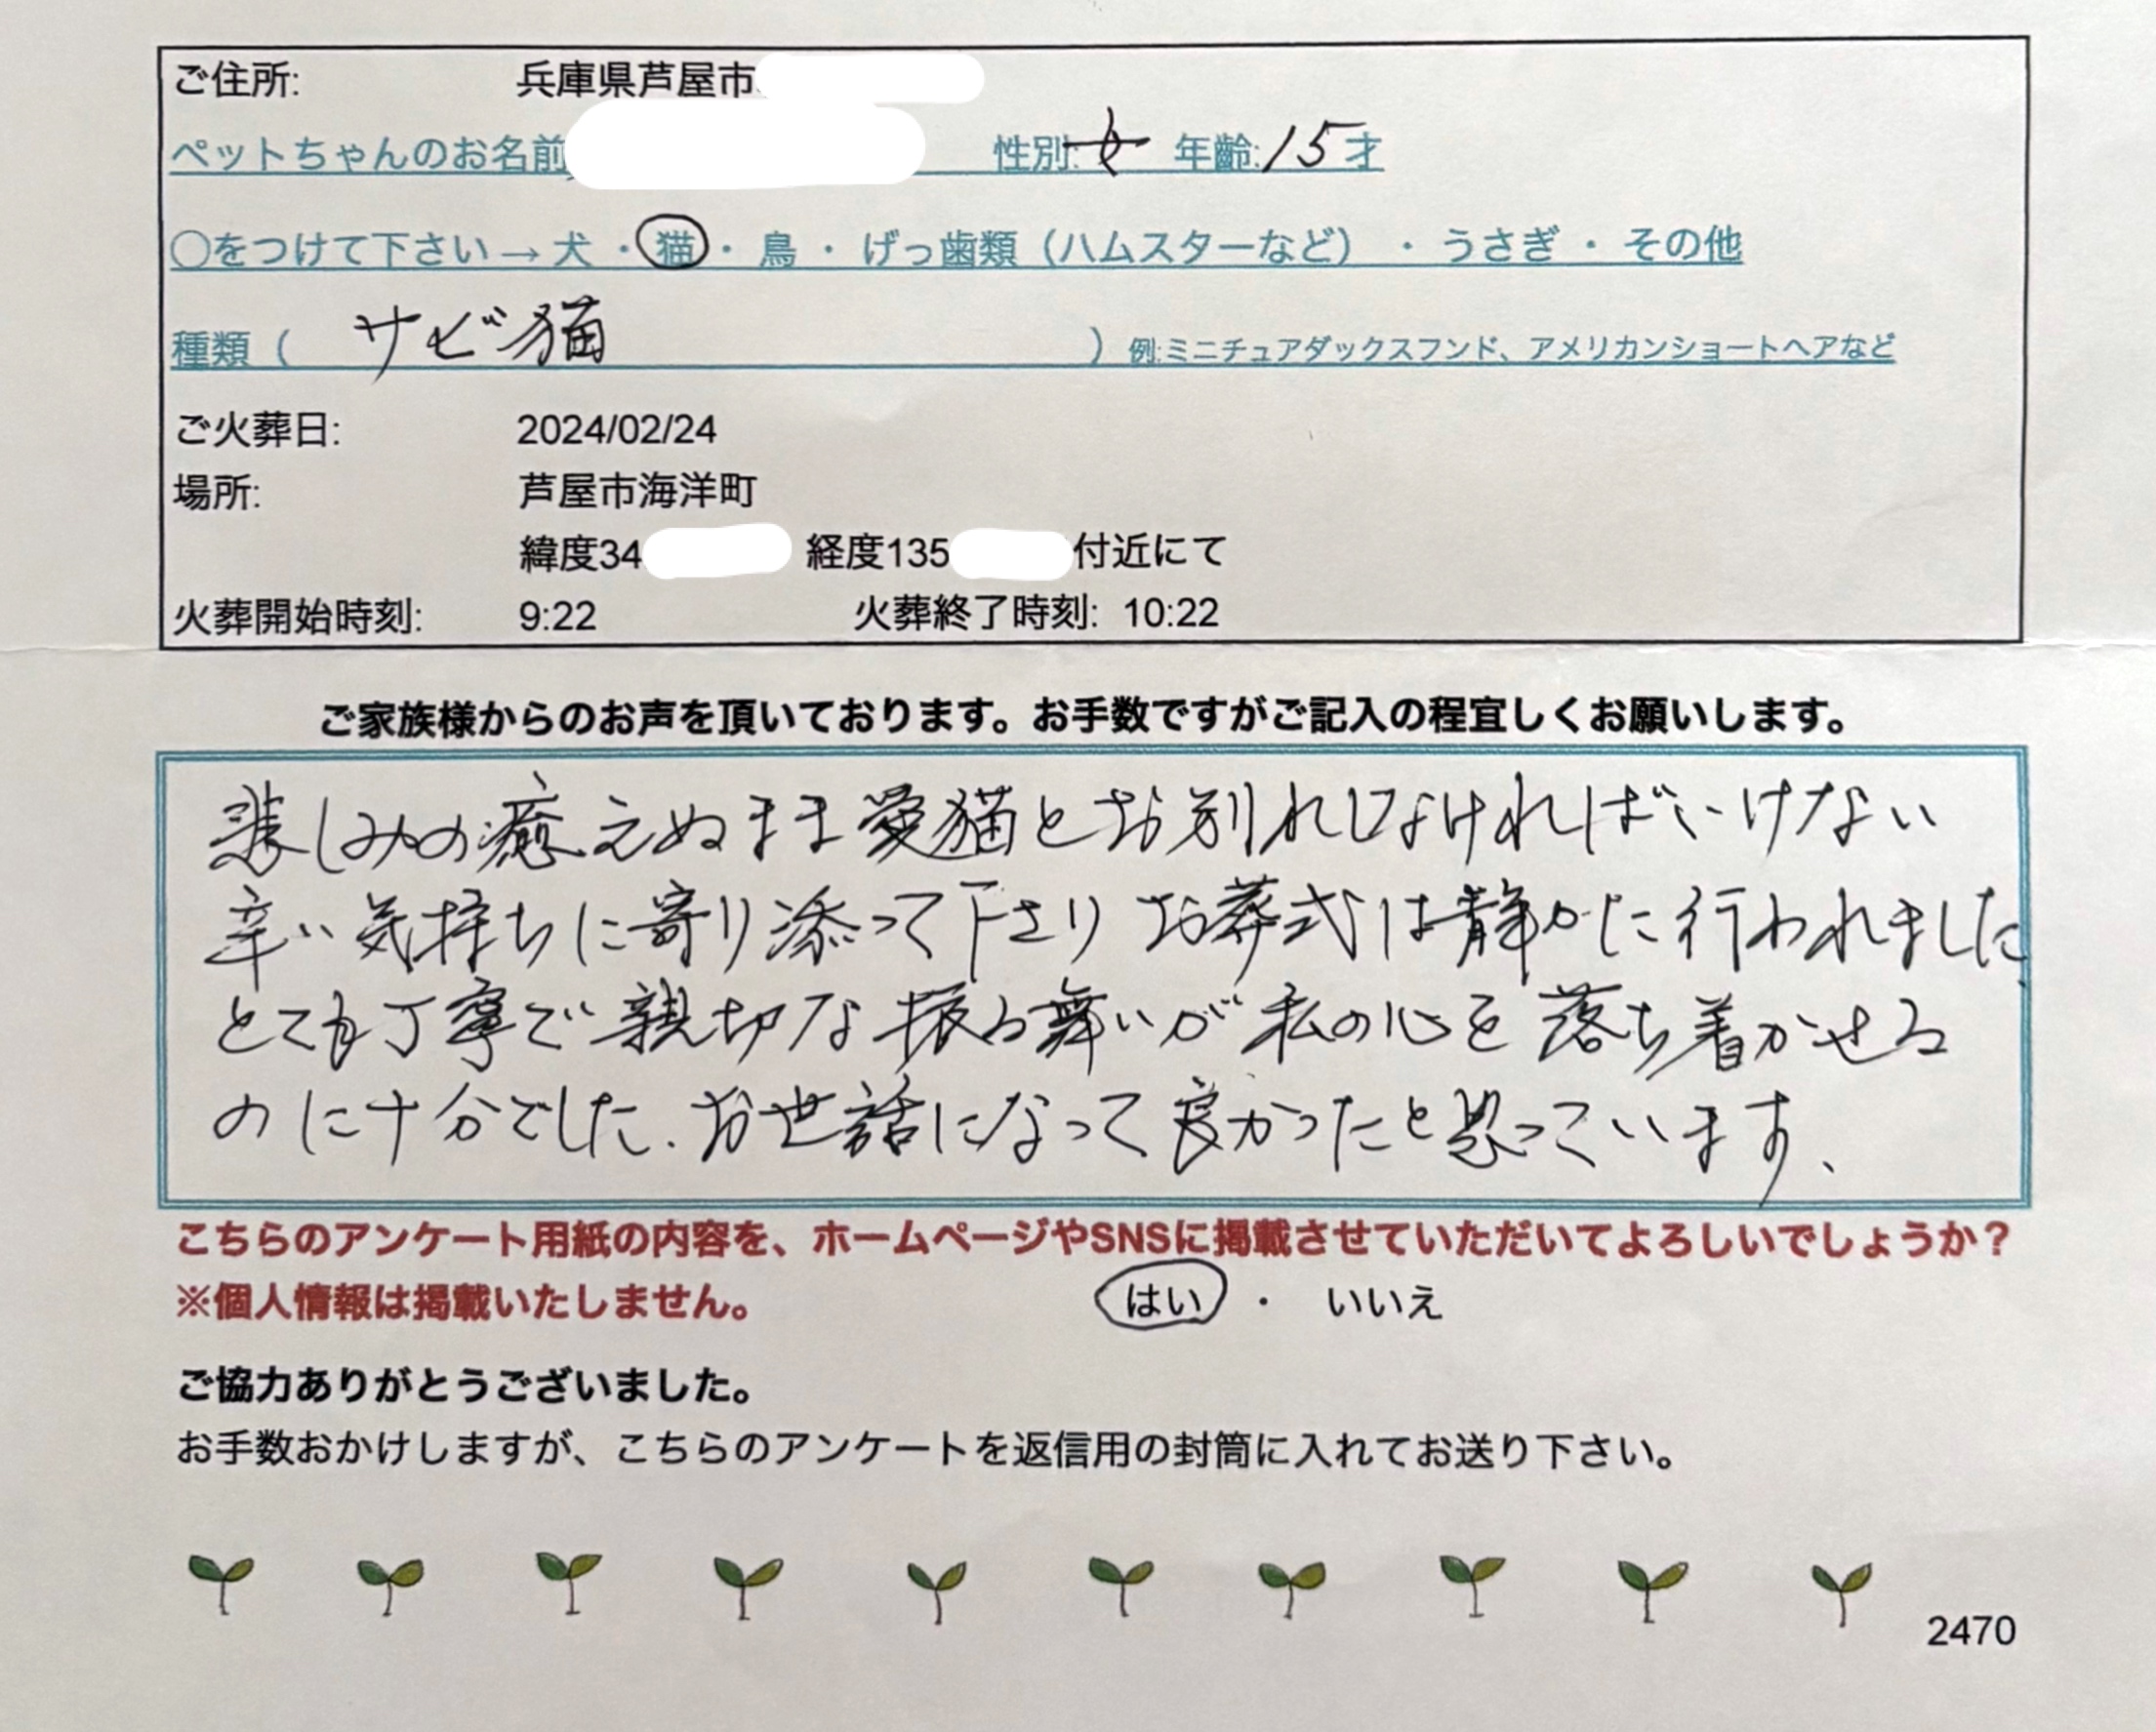 ご住所: 兵庫県芦屋市
ペットちゃんのお名前 性別:女 年齢:15才
○をつけて下さい→犬・猫・鳥・げっ歯類（ハムスターなど）・うさぎ・その他
種類（サビ猫）例:ミニチュアダックスフンド、アメリカンショートヘアなど
ご火葬日: 2024/02/24
場所: 芦屋市海洋町
緯度34 経度135 付近にて
火葬開始時刻: 9:22 火葬終了時刻: 10:22
ご家族様からのお声を頂いております。お手数ですがご記入の程宜しくお願いします。
悲しみの癒えぬまま愛猫とお別れしなければいけない
辛い気持ちに寄り添って下さりお葬式は静かに行われました、
とても丁寧で親切な振る舞いが私の心を落ち着かせる
のに十分でした.お世話になって良かったと思っています、
こちらのアンケート用紙の内容を、ホームページやSNSに掲載させていただいてよろしいでしょうか？
※個人情報は掲載いたしません。 はい ・ いいえ
ご協力ありがとうございました。
お手数おかけしますが、こちらのアンケートを返信用の封筒に入れてお送り下さい。
2470